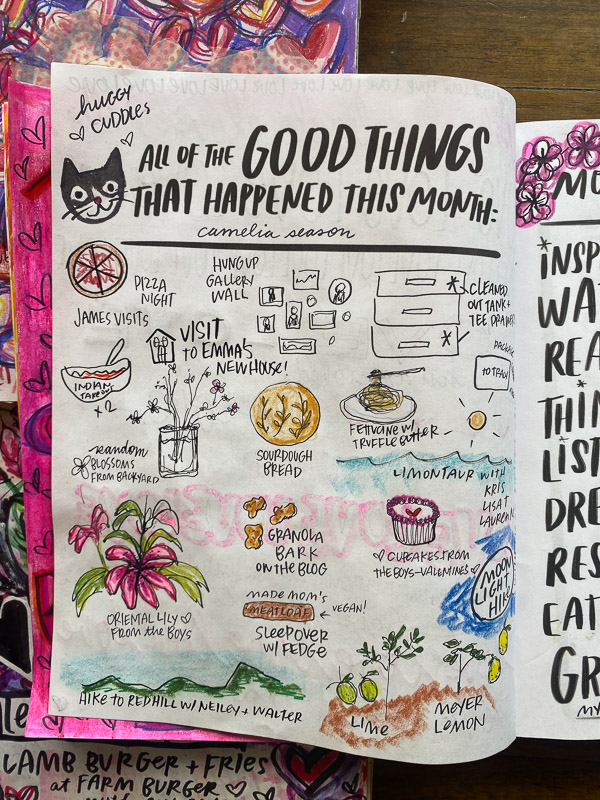 huggy
cuddles
ALL OF THE GOOD THINGS
THAT HAPPENED THIS MONTH:
camelia season
PIZZA
NIGHT
HUNG UP
GALLERY
WALL
CLEANED
OUT TANK +
TEE DRAWERS
JAMES VISITS
VISIT
to EMMA'S
NEW HOUSE!
INDIAN
TAKEOUT
x2
TO TRACY
random
BLOSSOMS
FROM BACKYARD
SOURDOUGH
BREAD
FETTUCINE W/
TRUFFLE BUTTER
LIMONTAUR WITH
KRIS
LISA T
LAUREN
GRANOLA
BARK
ON THE BLOG
CUPCAKES FROM
THE BOYS-VALENTINES
MOON
LIGHT
HIKE
ORIENTAL LILY
FROM the BOYS
MADE MOM'S
MEATLOAF
VEGAN!
SLEEPOVER
W/ PEDGE
HIKE to RED HILL W/ NEILEY + WALTER
LIME
MEYER
LEMON
LAMB BURGER + FRIES
at FARM BURGER
MO
INSP
WA
REA
THIN
LIST
DRE
RES
EAT
GR
MY